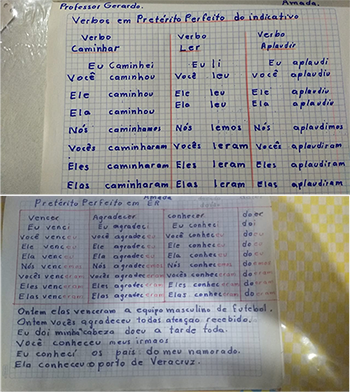 Professor Gerardo. Amada.
Verbos em Pretérito Perfeito do indicativo
Verbo Verbo Verbo
Caminhar Ler Aplaudir
Eu Caminhei Eu li Eu aplaudi
Você caminhou Você leu você aplaudiu
Ele caminhou Ele leu Ele aplaudiu
Ela caminhou Ela leu Ela aplaudiu
Nós caminhamos Nós lemos Nós aplaudimos
Vocês caminharam Vocês leram Vocês aplaudiram
Eles caminharam Eles leram Eles aplaudiram
Elas caminharam Elas leram Elas aplaudiram
Amada
Pretérito Perfeito em ER
Vencer Agradecer conhecer doer
Eu venci Eu agradeci Eu conheci doi
Você venceu Você agradeceu Você conheceu doeu
Ele venceu Ele agradeceu Ele conheceu doeu
Ela venceu Ela agradeceu Ela conheceu doeu
Nós vencemos Nós agradecemos Nós conhecemos
Vocês venceram Vocês agradeceram Vocês conheceram doeram
Eles venceram Eles agradeceram Eles conheceram doeram
Elas venceram Elas agradeceram Elas conheceram doeram
Ontem elas venceram a equipo masculino de Futebol.
Ontem vocês agradeceu todas atenção recebido.
Eu doi minha cabeza doeu a tarde toda.
Você conheceu meus irmaos
Eu conheci os pais do meu namorado.
Ela conheceu o porto de Veracruz.